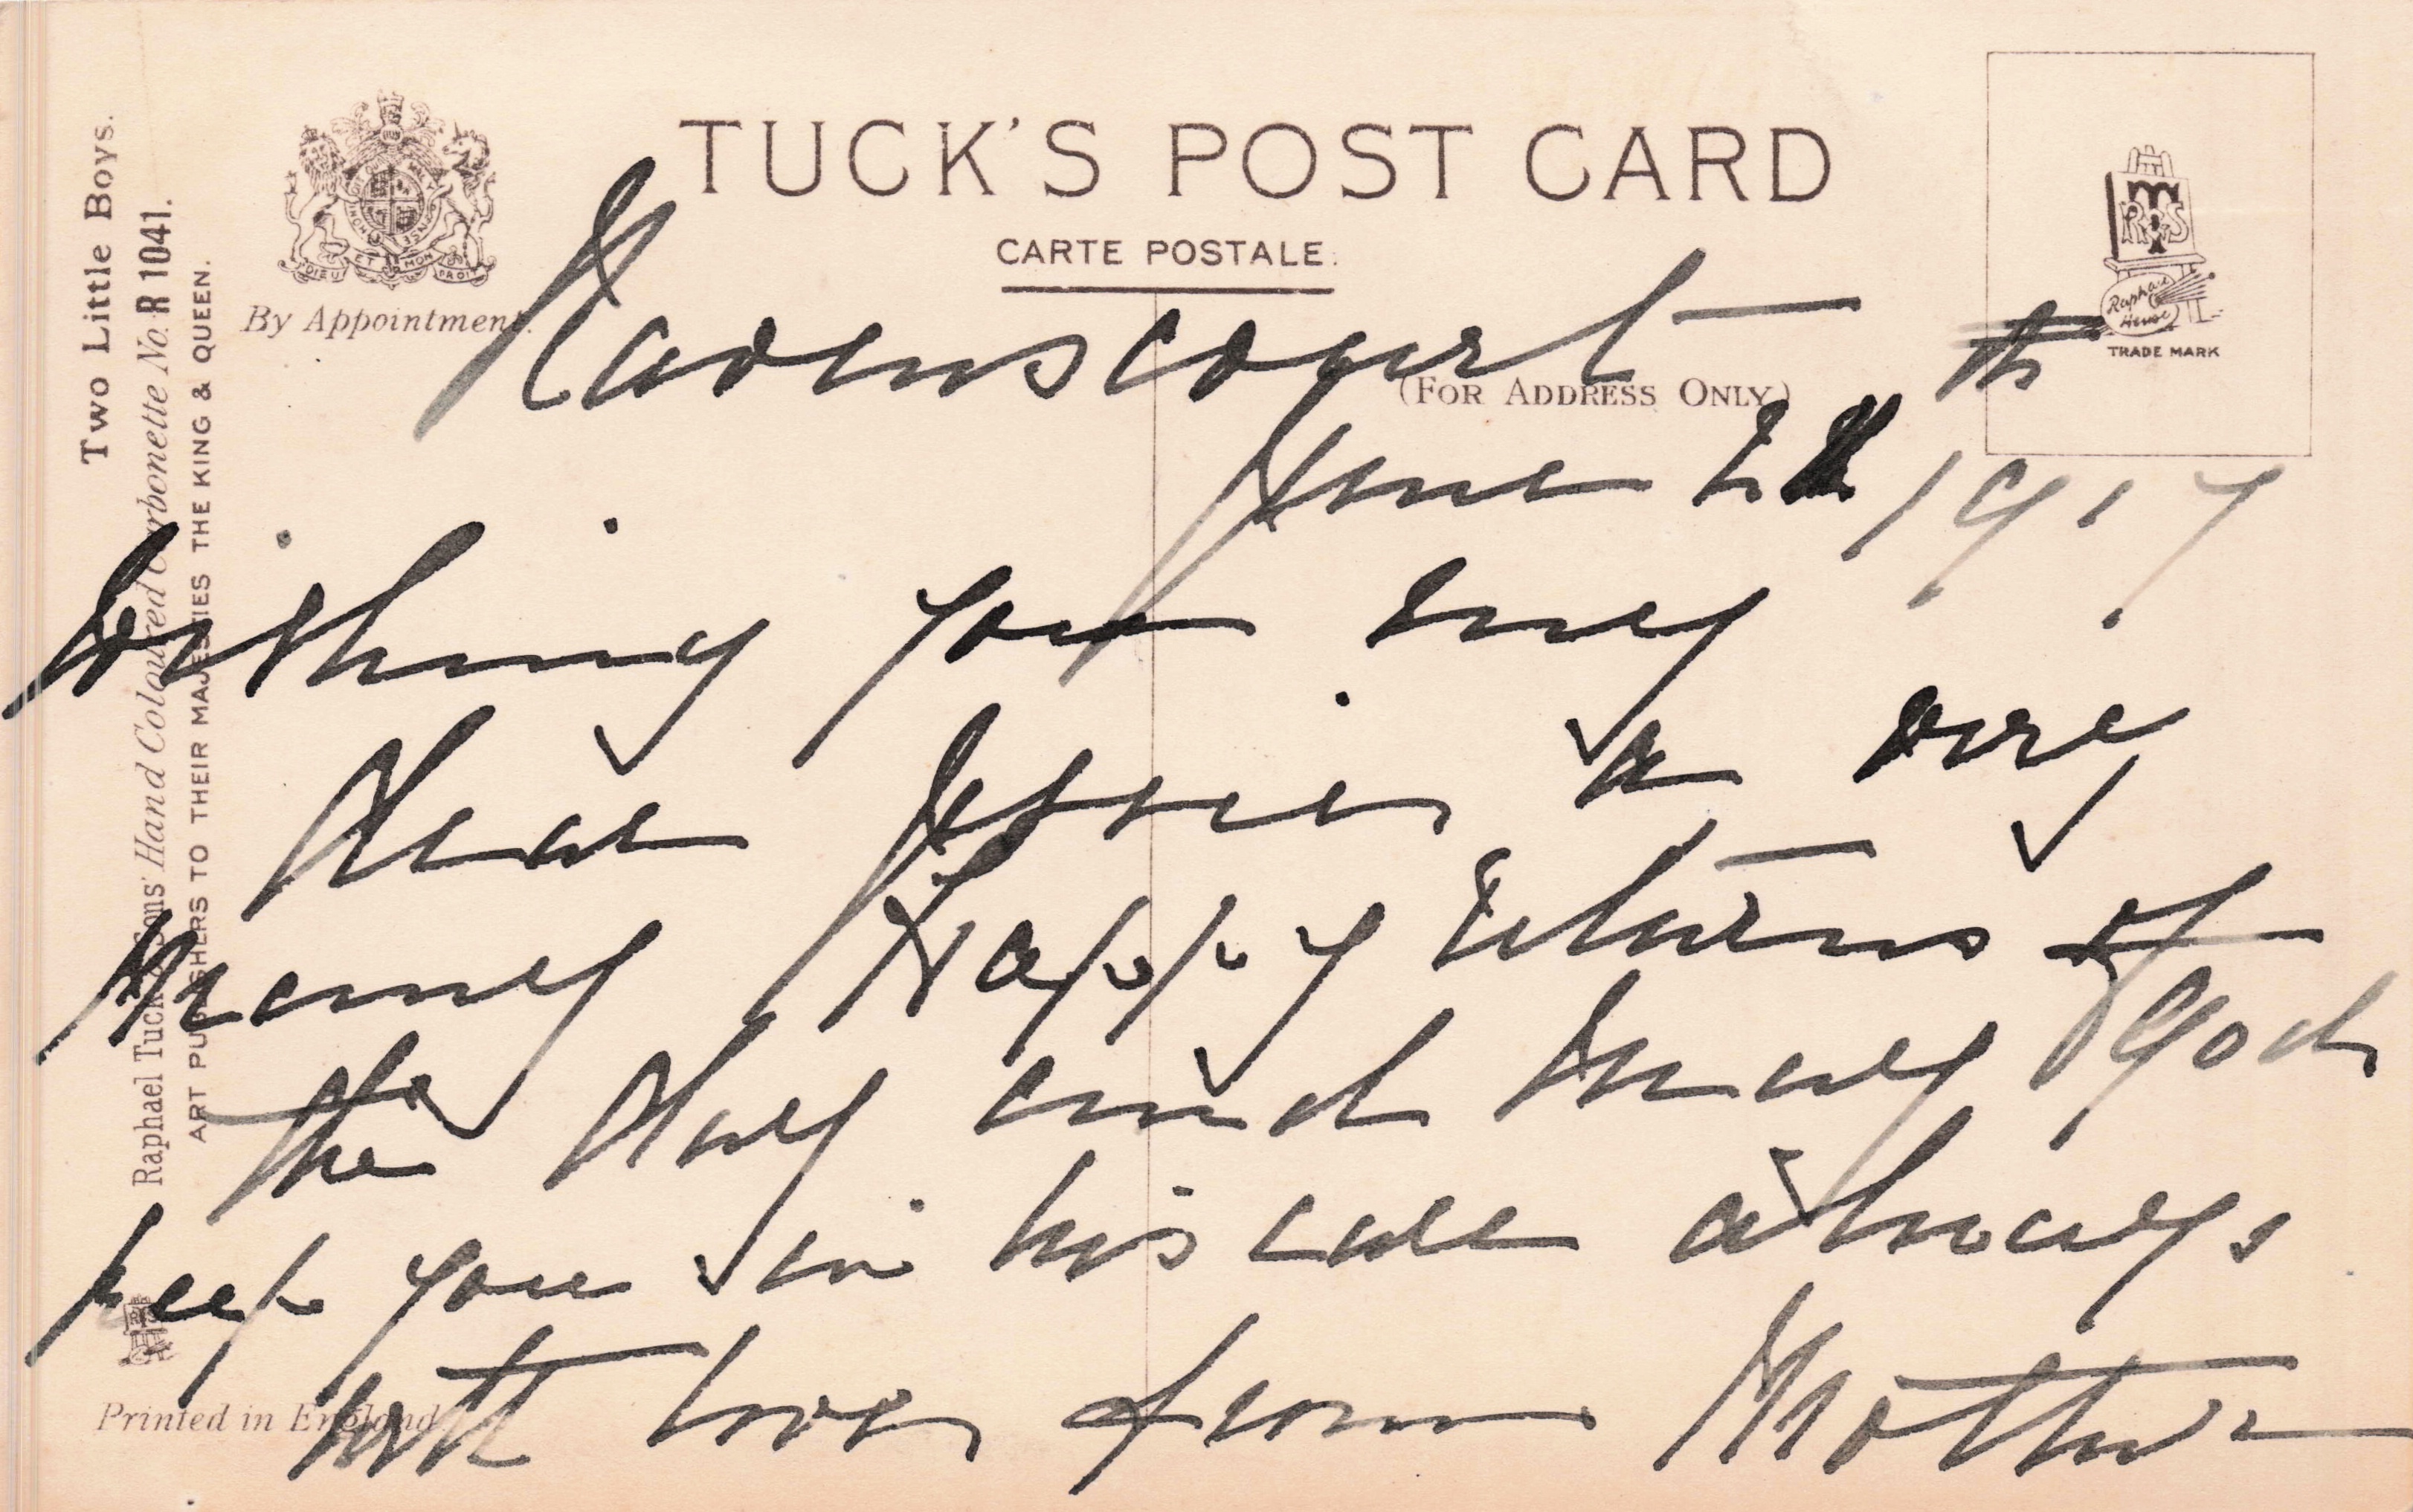 TUCK'S POST CARD
CARTE POSTALE.
(FOR ADDRESS ONLY)
By Appointment.
DIEU ET MON DROIT
Two Little Boys.
Raphael Tuck & Sons' Hand Coloured Carbonette No. R 1041.
ART PUBLISHERS TO THEIR MAJESTIES THE KING & QUEEN.
Printed in England
Raphael
House
TRADE MARK
Ravenscourt
th
June 1917
Wishing you my
dear Jessie, a very
Many Happy returns of
the day and may God
keep you in his care always
with love, from Mother